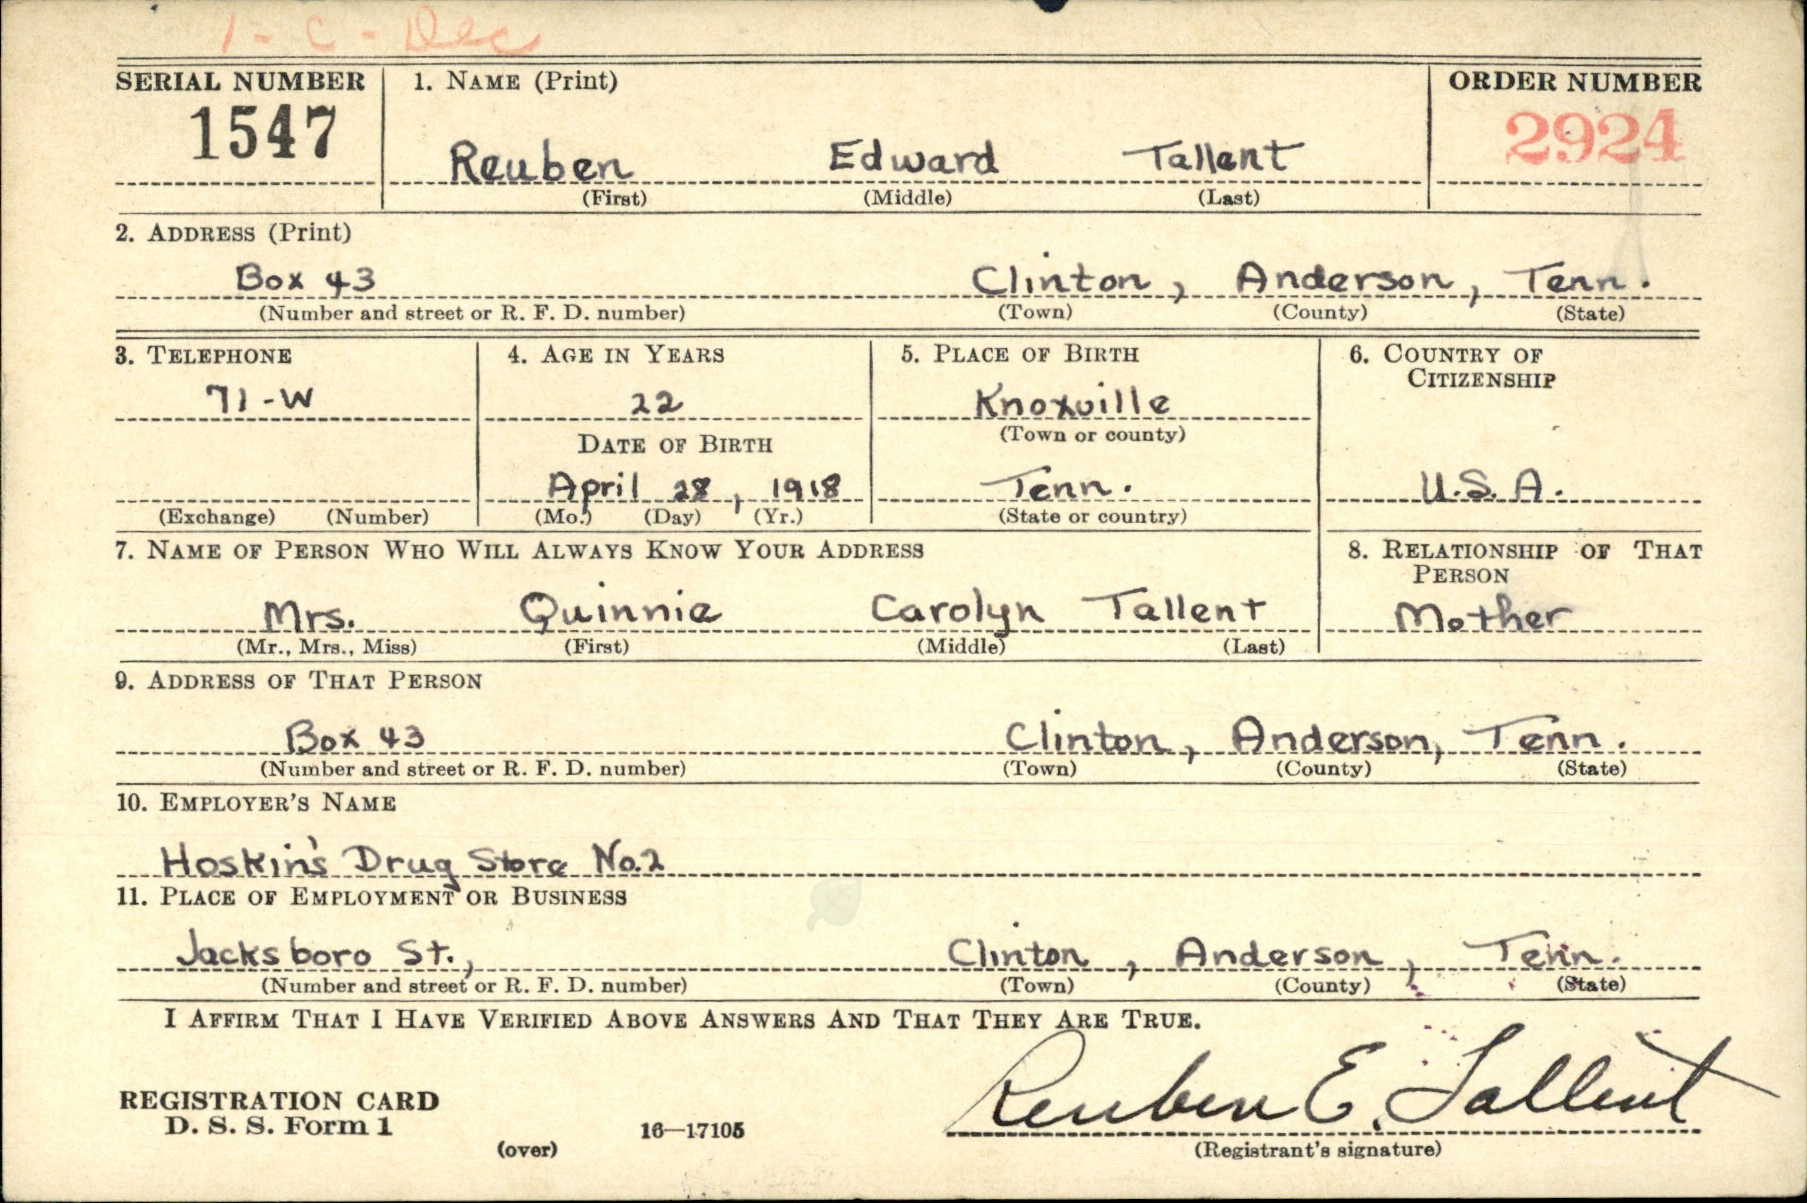 1-C-Dec
SERIAL NUMBER 1. NAME (Print) ORDER NUMBER
1547 Reuben Edward Tallent 2924
(First) (Middle) (Last)
2. ADDRESS (Print)
Box 43 Clinton, Anderson, Tenn.
(Number and street or R. F. D. number) (Town) (County) (State)
3. TELEPHONE 4. AGE IN YEARS 5. PLACE OF BIRTH 6. COUNTRY OF CITIZENSHIP
71-W 22 Knoxville
DATE OF BIRTH (Town or county)
April 28, 1918 Tenn. U.S.A.
(Exchange) (Number) (Mo.) (Day) (Yr.) (State or country)
7. NAME OF PERSON WHO WILL ALWAYS KNOW YOUR ADDRESS 8. RELATIONSHIP OF THAT PERSON
Mrs. Quinnie Carolyn Tallent Mother
(Mr., Mrs., Miss) (First) (Middle) (Last)
9. ADDRESS OF THAT PERSON
Box 43 Clinton, Anderson, Tenn.
(Number and street or R. F. D. number) (Town) (County) (State)
10. EMPLOYER'S NAME
Hoskin's Drug Store No.2
11. PLACE OF EMPLOYMENT OR BUSINESS
Jacksboro St., Clinton, Anderson, Tenn.
(Number and street or R. F. D. number) (Town) (County) (State)
I AFFIRM THAT I HAVE VERIFIED ABOVE ANSWERS AND THAT THEY ARE TRUE.
REGISTRATION CARD Reuben E. Tallent
D. S. S. Form 1 16—17105
(over) (Registrant's signature)